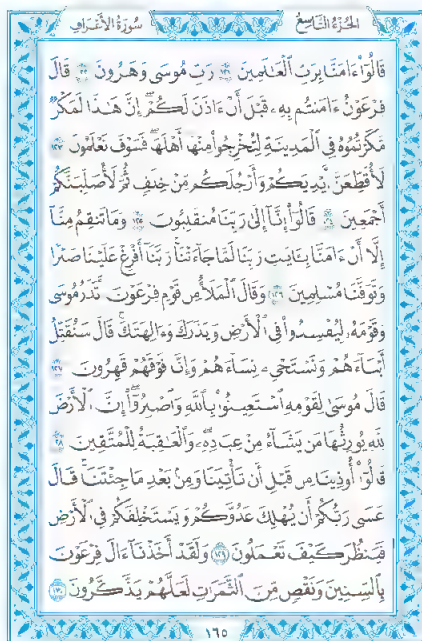 الجزء التاسع سورة الأعراف
قَالُوٓا۟ ءَامَنَّا بِرَبِّ ٱلْعَٰلَمِينَ ١٢١ رَبِّ مُوسَىٰ وَهَٰرُونَ ١٢٢ قَالَ
فِرْعَوْنُ ءَامَنتُم بِهِۦ قَبْلَ أَنْ ءَاذَنَ لَكُمْ ۖ إِنَّ هَٰذَا لَمَكْرٌ
مَّكَرْتُمُوهُ فِى ٱلْمَدِينَةِ لِتُخْرِجُوا۟ مِنْهَآ أَهْلَهَا ۖ فَسَوْفَ تَعْلَمُونَ ١٢٣
لَأُقَطِّعَنَّ أَيْدِيَكُمْ وَأَرْجُلَكُم مِّنْ خِلَٰفٍ ثُمَّ لَأُصَلِّبَنَّكُمْ
أَجْمَعِينَ ١٢٤ قَالُوٓا۟ إِنَّآ إِلَىٰ رَبِّنَا مُنقَلِبُونَ ١٢٥ وَمَا تَنقِمُ مِنَّآ
إِلَّآ أَنْ ءَامَنَّا بِـَٔايَٰتِ رَبِّنَا لَمَّا جَآءَتْنَا ۚ رَبَّنَآ أَفْرِغْ عَلَيْنَا صَبْرًا
وَتَوَفَّنَا مُسْلِمِينَ ١٢٦ وَقَالَ ٱلْمَلَأُ مِن قَوْمِ فِرْعَوْنَ أَتَذَرُ مُوسَىٰ
وَقَوْمَهُۥ لِيُفْسِدُوا۟ فِى ٱلْأَرْضِ وَيَذَرَكَ وَءَالِهَتَكَ ۚ قَالَ سَنُقَتِّلُ
أَبْنَآءَهُمْ وَنَسْتَحْىِۦ نِسَآءَهُمْ وَإِنَّا فَوْقَهُمْ قَٰهِرُونَ ١٢٧
قَالَ مُوسَىٰ لِقَوْمِهِ ٱسْتَعِينُوا۟ بِٱللَّهِ وَٱصْبِرُوٓا۟ ۖ إِنَّ ٱلْأَرْضَ
لِلَّهِ يُورِثُهَا مَن يَشَآءُ مِنْ عِبَادِهِۦ ۖ وَٱلْعَٰقِبَةُ لِلْمُتَّقِينَ ١٢٨
قَالُوٓا۟ أُوذِينَا مِن قَبْلِ أَن تَأْتِيَنَا وَمِنۢ بَعْدِ مَا جِئْتَنَا ۚ قَالَ
عَسَىٰ رَبُّكُمْ أَن يُهْلِكَ عَدُوَّكُمْ وَيَسْتَخْلِفَكُمْ فِى ٱلْأَرْضِ
فَيَنظُرَ كَيْفَ تَعْمَلُونَ ١٢٩ وَلَقَدْ أَخَذْنَآ ءَالَ فِرْعَوْنَ
بِٱلسِّنِينَ وَنَقْصٍ مِّنَ ٱلثَّمَرَٰتِ لَعَلَّهُمْ يَذَّكَّرُونَ ١٣٠
١٦٥